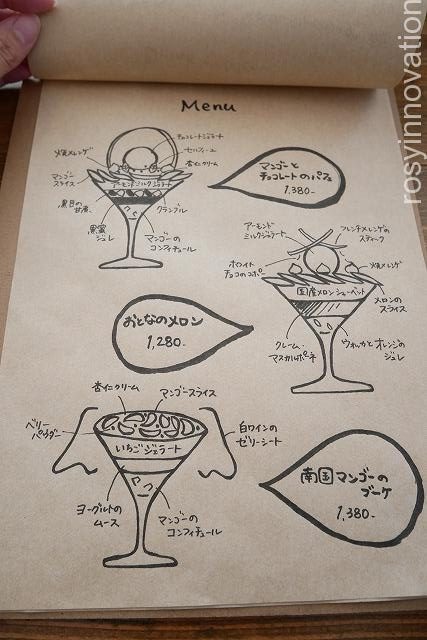 Menu
チョコレートジェラート
セルフィーユ
杏仁クリーム
焼メレンゲ
マンゴー
スライス
アーモンドミルクジェラート
黒豆の
甘煮
クランブル
黒蜜
ジュレ
マンゴーの
コンフィチュール
マンゴーと
チョコレートのパフェ
1,380-
アーモンド
ミルクジェラート
フレンチメレンゲの
スティック
ホワイト
チョコのコポー
焼メレンゲ
国産メロンシャーベット
メロンの
スライス
クレーム・
マスカルポーネ
ウォッカとオレンジの
ジュレ
おとなのメロン
1,280-
杏仁クリーム
マンゴースライス
ベリー
パウダー
いちごジェラート
白ワインの
ゼリーシート
ヨーグルトの
ムース
マンゴーの
コンフィチュール
南国マンゴーの
ブーケ
1,380-
rosyinnovation